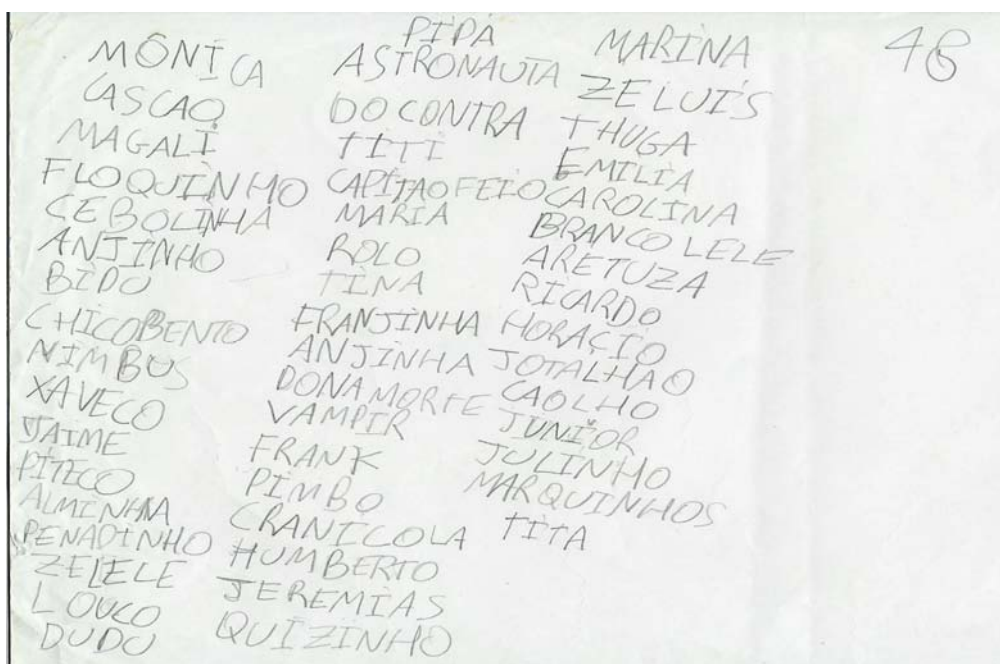 MÔNICA
CASCAO
MAGALI
FLOQUINHO
CEBOLINHA
ANJINHO
BIDU
CHICOBENTO
NIMBUS
XAVECO
JAIME
PITECO
ALMINHA
PENADINHO
ZELELE
LOUCO
DUDU
PIPA
ASTRONAUTA
DO CONTRA
TITI
CAPITAO FEIO
MARIA
ROLO
TINA
FRANJINHA
ANJINHA
DONA MORTE
VAMPIR
FRANK
PIMBO
CRANICOLA
HUMBERTO
JEREMIAS
QUIZINHO
MARINA
ZE LUIS
THUGA
EMILIA
CAROLINA
BRANCO LELE
ARETUZA
RICARDO
HORACIO
JOTALHAO
CAOLHO
JUNIOR
JULINHO
MARQUINHOS
TITA
48